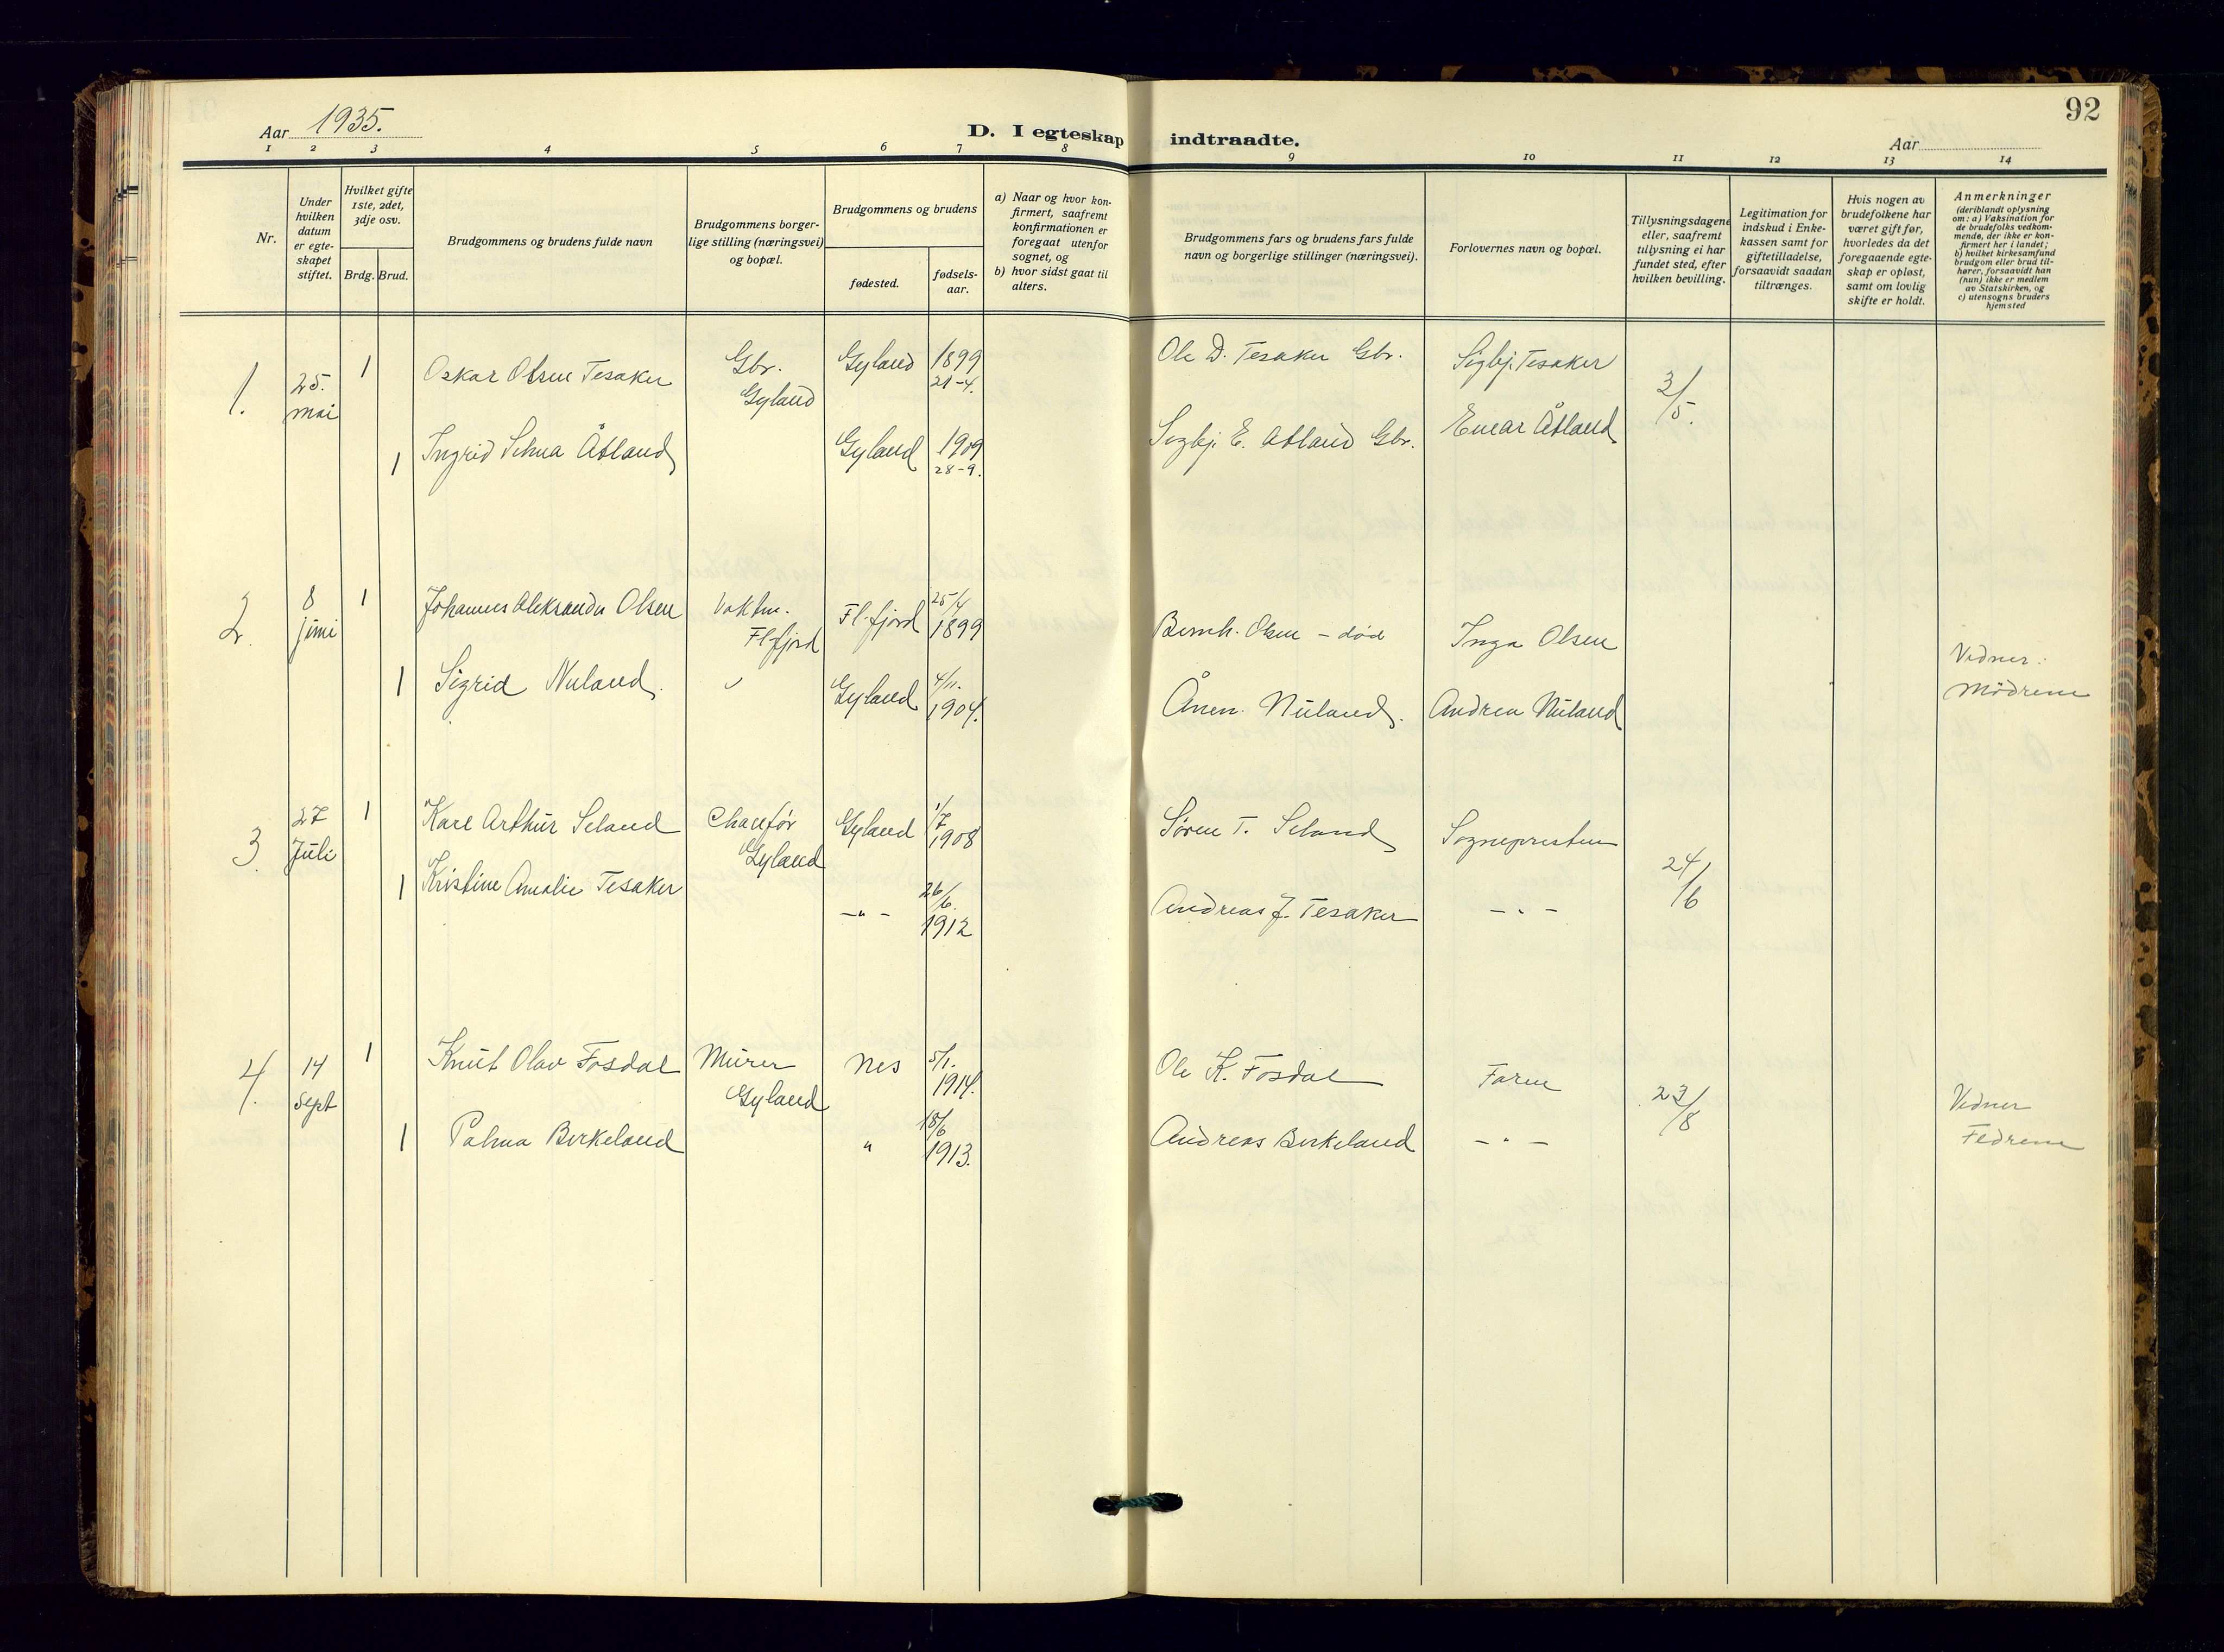 92
Aar 1935.
D. I egteskap indtraadte.
Aar
1 2 3 4 5 6 7 8 9 10 11 12 13 14
Nr.
Under
hvilken
datum
er egte-
skapet
stiftet.
Hvilket gifte
1ste, 2det,
3dje osv.
Brdg. Brud.
Brudgommens og brudens fulde navn
Brudgommens borger-
lige stilling (næringsvei)
og bopæl.
Brudgommens og brudens
fødested.
fødsels-
aar.
a) Naar og hvor kon-
firmert, saafremt
konfirmationen er
foregaat utenfor
sognet, og
b) hvor sidst gaat til
alters.
Brudgommens fars og brudens fars fulde
navn og borgerlige stillinger (næringsvei).
Forlovernes navn og bopæl.
Tillysningsdagene
eller, saafremt
tillysning ei har
fundet sted, efter
hvilken bevilling.
Legitimation for
indskud i Enke-
kassen samt for
giftetilladelse,
forsaavidt saadan
tiltrænges.
Hvis nogen av
brudefolkene har
været gift før,
hvorledes da det
foregaaende egte-
skap er opløst,
samt om lovlig
skifte er holdt.
Anmerkninger
(deriblandt oplysning
om: a) Vaksination for
de brudefolks vedkom-
mende, der ikke er kon-
firmert her i landet;
b) hvilket kirkesamfund
brudgom eller brud til-
hører, forsaavidt han
(hun) ikke er medlem
av Statskirken, og
c) utensogns bruders
hjemsted
1. 25. mai 1 Oskar Olsen Tesaker Gbr. Gyland Gyland 1899 21-4. Ole D. Tesaker Gbr. Sigbj. Tesaker 3/5.
1 Ingrid Selma Åtland Gyland 1909 28-9. Sigbj. E. Åtland Gbr. Einar Åtland
2. 8 juni 1 Johannes Aleksander Olsen Vaktm. Fl.fjord Fl.fjord 25/4 1899 Bernh. Olsen - død Inga Olsen
1 Sigrid Nuland. Gyland 4/11. 1904. Ånen Nuland. Andrea Nuland
Vidner:
Mødrene
3. 27 Juli 1 Karl Arthur Seland Chaufør Gyland Gyland 1/7 1908 Søren T. Seland Sognepresten 24/6
1 Kristine Amalie Tesaker -"- 26/6. 1912 Andreas J. Tesaker -"-
4. 14 sept 1 Knut Olav Fosdal Murer Gyland Nes 5/1. 1914. Ole K. Fosdal Faren 23/8
1 Palma Birkeland " 18/6 1913. Andreas Birkeland -"-
Vidner
Fedrene